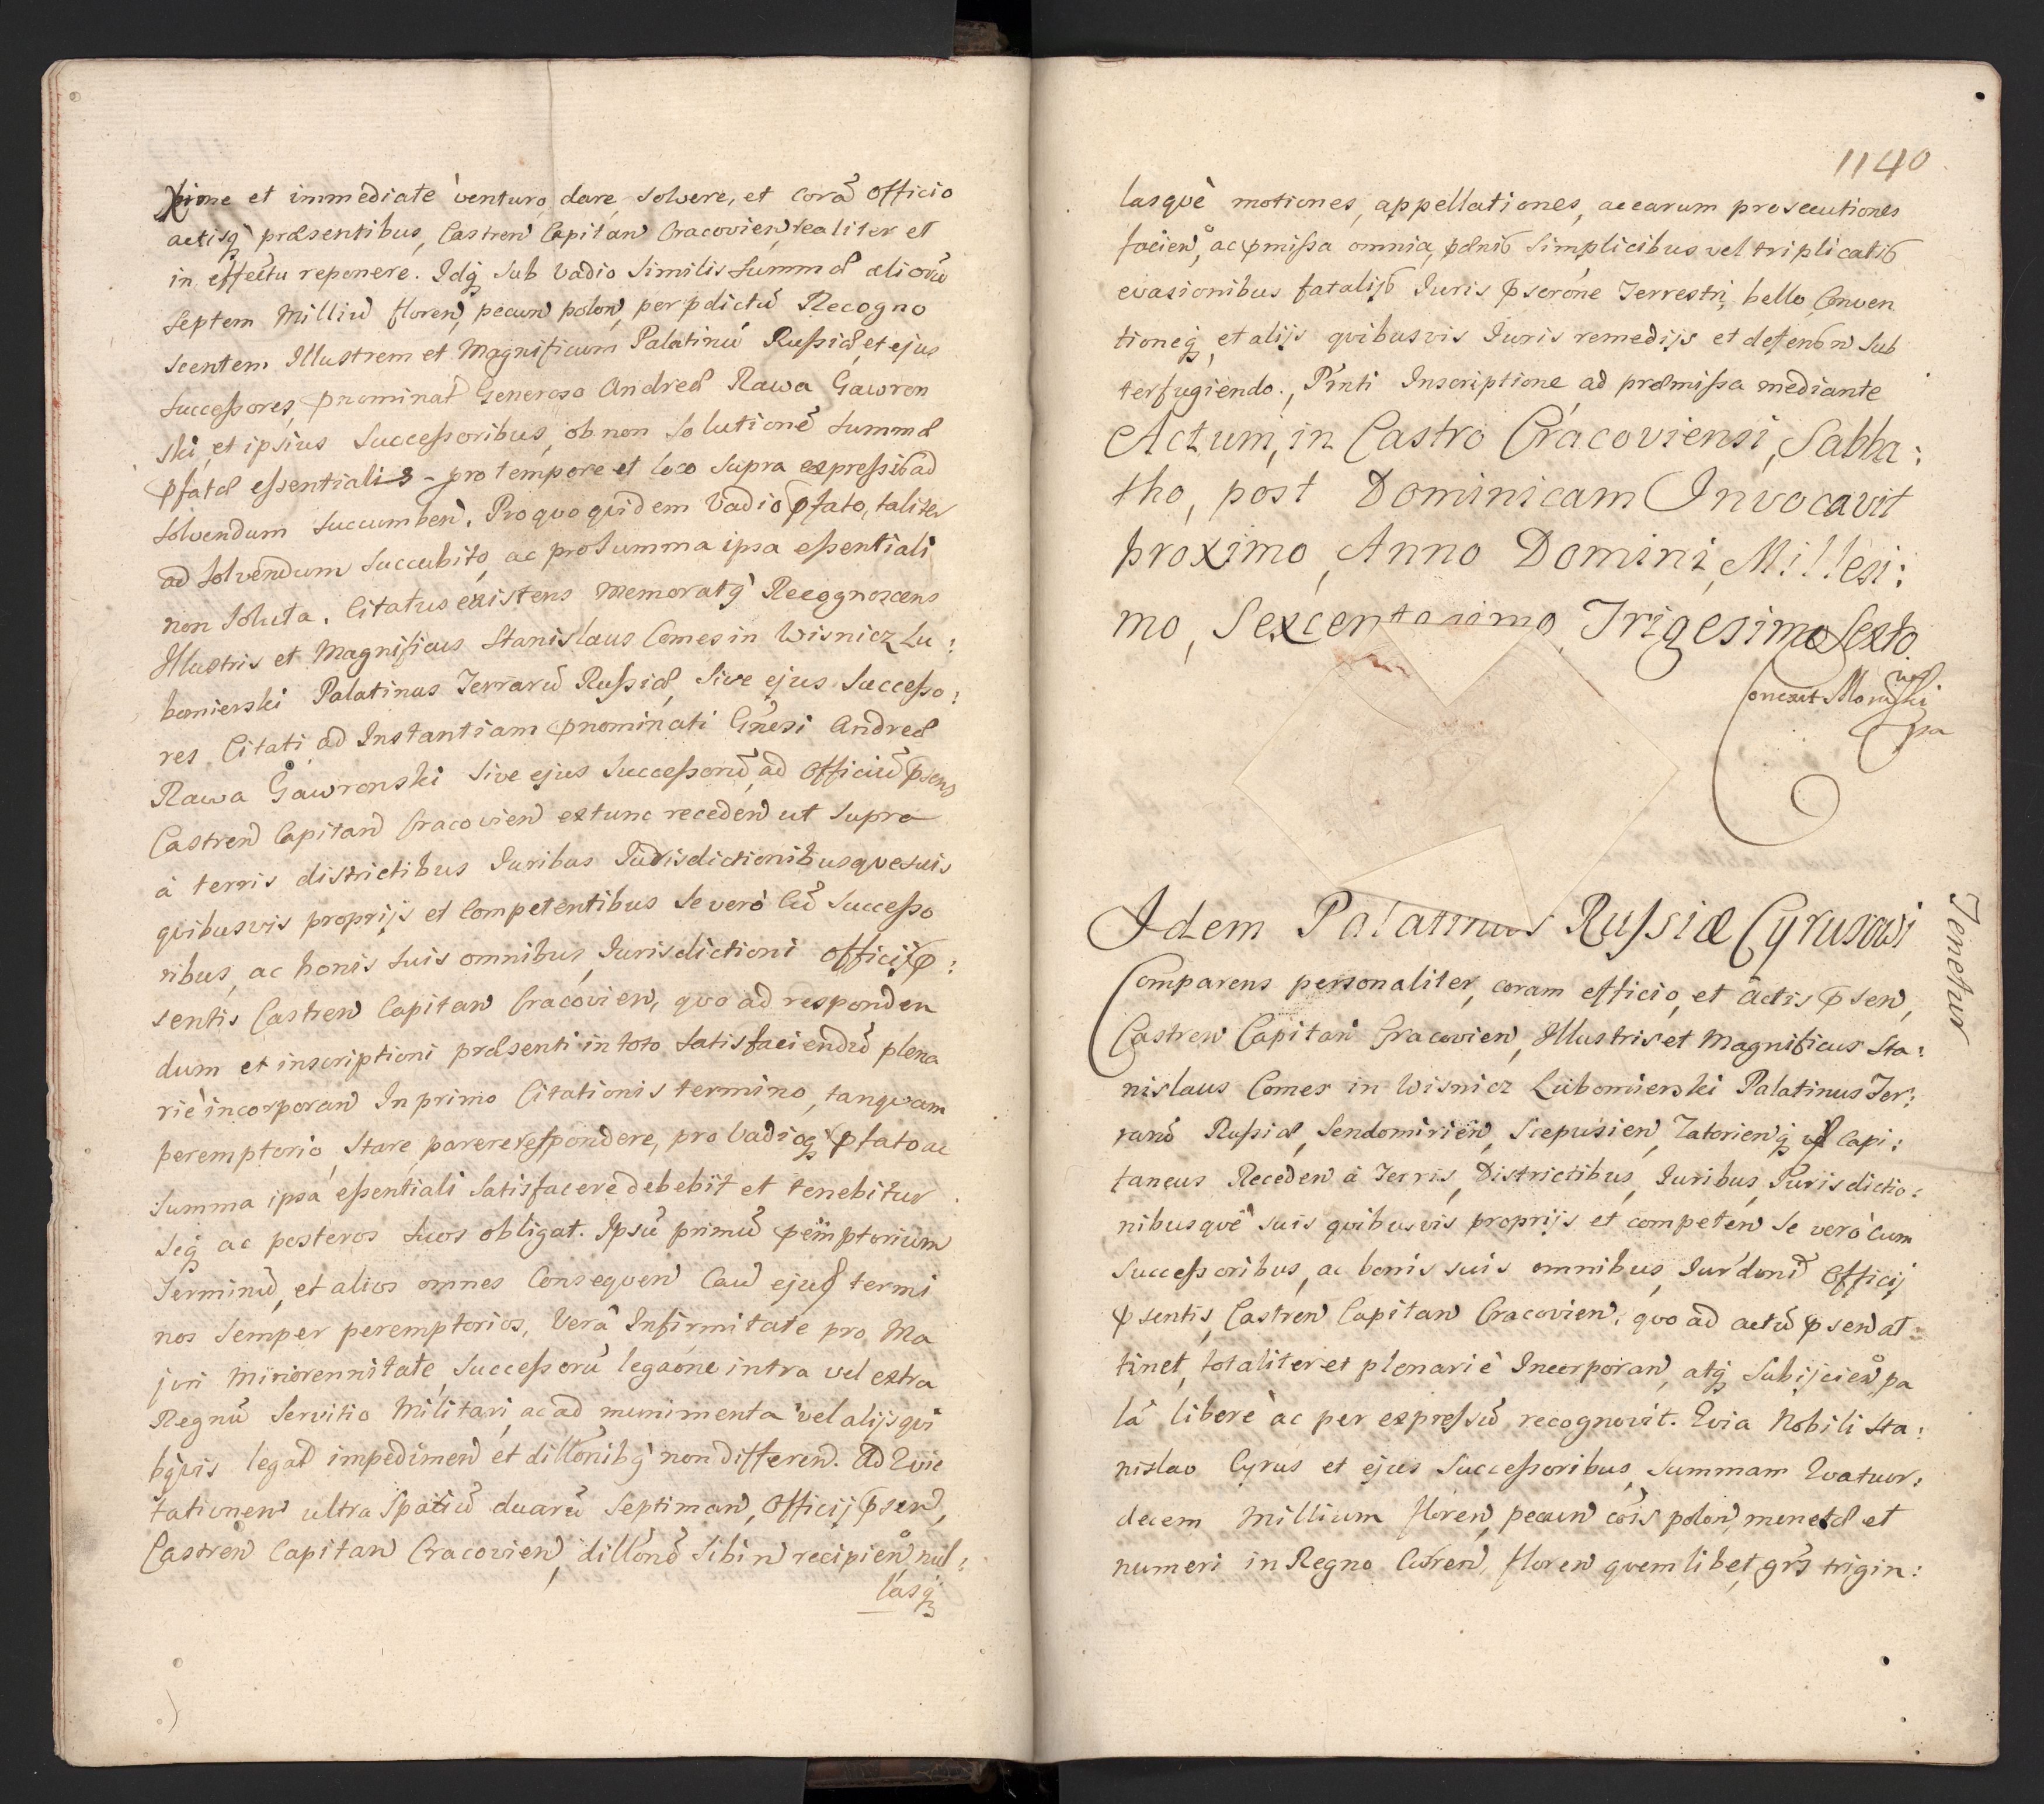 xime et immediate venturo, dare, solvere, et corā officio
actisq̨ præsentibus, Castren̄ Capitan̄ Cracovien̄, realiter et
in effectu reponere. Idq̨ sub vadio similis summæ aliorū
septem Milliū floren̄, pecun̄ polon̄, per p̄dictū Recogno
scentem Illustrem et Magnificum Palatinū Russiæ, et ejus
successores, p̄nominat̄ Generoso Andreæ Rawa Gawron
ski, et ipsius successoribus, ob non solutionē summæ
p̄fatæ essentialis - pro tempore et loco supra expressis ad
solvendum succumben̄. Pro quo quidem vadio p̄fato, taliter
ad solvendum succubito, ac pro summa ipsa essentiali
non soluta. Citatus existens memoratq̨ Recognoscens
Illustris et Magnificus Stanislaus Comes in Wisnicz Lu:
bomierski Palatinus Terrarū Russiæ, sive ejus successo:
res Citati, ad Instantiam p̄nominati Gn̄rsi Andreæ
Rawa Gawronski sive ejus successorū, ad officiū p̄sens
Castren̄ Capitan̄ Cracovien̄ extunc receden̄ ut supra
à terris districtibus Iuribus Iurisdictionibusque suis
quibusvis proprijs et competentibus se verò Cū successo
ribus, ac bonis suis omnibus, Iurisdictioni officij p̄:
sentis Castren̄ Capitan̄ Cracovien̄, quo ad responden
dum et inscriptioni præsenti in toto satisfaciendū plena
riè incorporan̄ In primo Citationis termino, tanquam
peremptorio, stare, parere respondere, pro vadioq̨ p̄fato ac
summa ipsa essentiali satisfacere debebit et tenebitur
seq̨ ac posteros suos obligat. Ipsū primū p̄emptorium
Terminū, et alios omnes Consequen̄ Cau̅ ejus termi
nos semper peremptorios, Verâ Infirmitate pro Ma
jori minorennitate successorū legaōne intra vel extra
Regnū servitio Militari, ac ad munimenta vel alijs qui
bq̨vis legal̄ impedimen̄ et dillōnibq̨ non differen̄. Ad Evic
tationem ultra spatiū duarū septiman̄, Officij p̄sen̄,
Castren̄ Capitan̄ Cracovien̄, dillōnē sibi n̄ recipien̄ nul:
lasq̨
1140
lasquè motiones, appellationes, ac earum prosecutiones
facien̄, ac p̄missa omnia, pænis simplicibus vel triplicatis
evasionibus fatalis Iuris p̄scrōne Terrestri, bello Conven
tioneq̨, et alijs quibusvis Iuris remedijs et defensn̄ sub
terfugiendo., Pn̄ti Inscriptione ad præmissa mediante
Actum, in Castro Cracoviensi, Sabba:
tho, post Dominicam Invocavit
proximo, Anno Domini, Millesi:
mo, Sexcentesimo, Trigesimo Sexto.
Idem Palatinus Russiæ Cyrusowi
Tenetur
Comparens personaliter, coram officio, et actis p̄sen̄,
Castren̄ Capitan̄ Cracovien̄, Illustris et Magnificus Sta:
nislaus Comes in Wisnicz Lubomierski Palatinus Ter:
rarū Russiæ, Sendomirien̄, Scepusien̄, Zatorienq̨ Capi:
taneus Receden̄ à Terris, Districtibus, Iuribus, Iurisdictio:
nibusquè suis quibusvis proprijs et competen̄ se verò cum
successoribus, ac bonis suis omnibus, Iurdōnī Officij
p̄sentis, Castren̄ Capitan̄ Cracovien̄, quo ad actū p̄sen̄ at
tinet, totaliter et plenariè Incorporan̄, atq̨ Subijcien̄ pa
lā liberè ac per expressū recognovit. Quia Nobili Sta:
nislao Cyrus et ejus Successoribus, summam Quatuor:
decem Millium floren̄, pecun̄ cōis polon̄, monetæ et
numeri in Regno Curen̄, floren̄ quemlibet, grs̄ trigin: